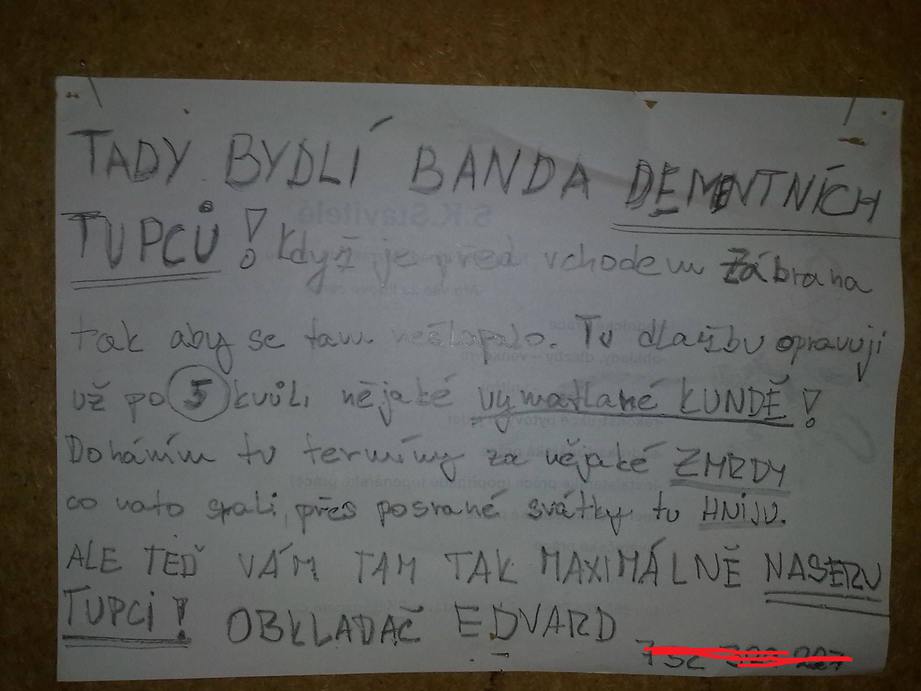 TADY BYDLÍ BANDA DEMNTNÍCH
TUPCŮ! Když je před vchodem zábrana
tak aby se tam nešlapalo. Tu dlažbu opravuji
už po 5 kvůli nějaké vymatlané KUNDĚ!
Doháním tu termíny za nějaké ZMRDY
co nato srali, přes posrané svátky tu HNIJU.
ALE TEĎ VÁM TAM TAK MAXIMÁLNĚ NASERU
TUPCI! OBKLADAČ EDVARD